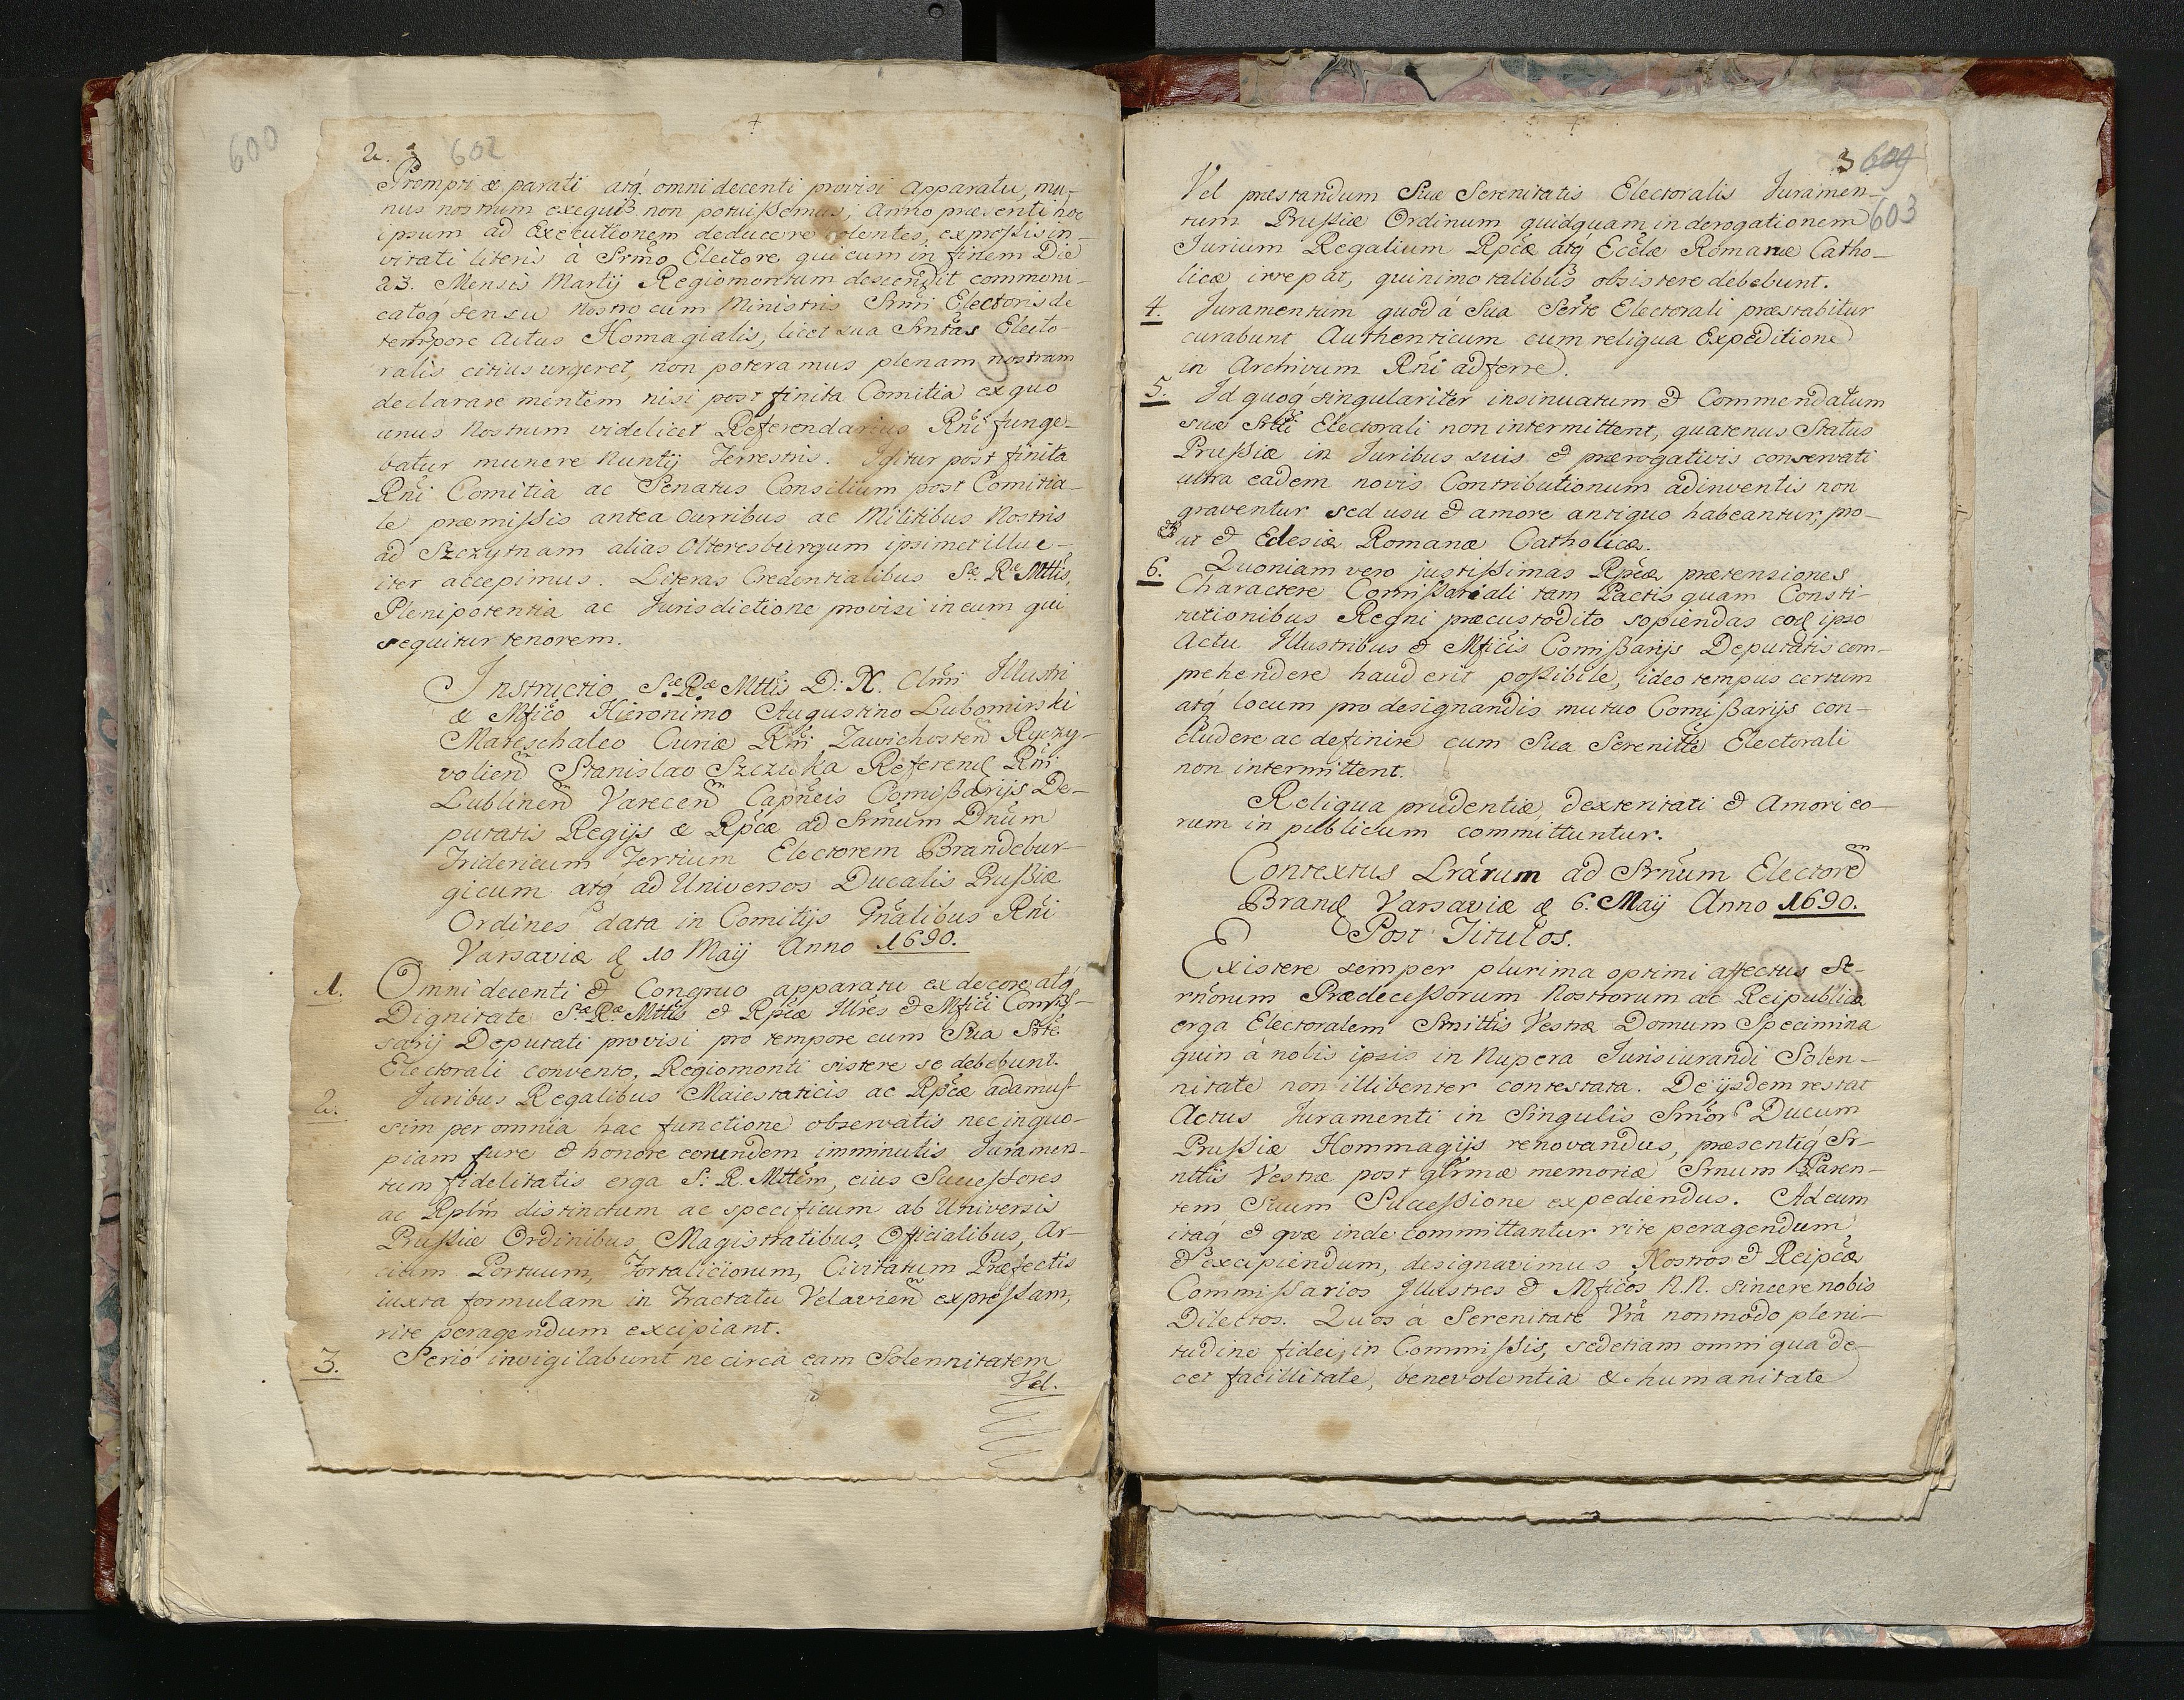 600
2. 602
Prompti & parati atq. omni decenti provisi apparatu, mu-
nus nostrum exequi non potuissemus; Anno præsenti hoc
ipsum ad Executionem deducere volentes, expressis in-
vitati literis à Srmo Electore, qui cum in finem Die
23. Mensis Martij Regiomontum descendit communi-
catoq sensu Nostro cum Ministris Srmi Electoris de
tempore Actus Homagialis, licet sua Srntas Electo-
ralis citius urgeret, non poteramus plenam nostram
declarare mentem nisi post finita Comitia ex quo
unus Nostrum videlicet Referendarius Rni funge-
batur munere Nuntij Terrestris. Igitur post finita
Rni Comitia ac Senatus Consilium post Comitia-
le præmissis antea Curribus ac Militibus Nostris
ad Szczytnam alias Olteresburgum ipsimet illuc
iter accepimus. Literas Credentialibus Sæ. Ræ Mttis,
Plenipotentia ac Jurisdictione provisi in eum qui
sequitur tenorem.
Instructio Sæ Ræ Mttis D: N. Clmi Illustri
& Mfico Hieronimo Augustino Lubomirski
Mareschalco Curiæ Rni Zawichosten Ryczy-
volien Stanislao Szczuka Referend Rni
Lublinen Varecen Capneis Comißarijs De-
putatis Regijs & Rpcæ ad Srmum Dnum
Fridericum Tertium Electorem Brandebur-
gicum atq ad Universos Ducalis Prußiæ
Ordines data in Comitijs Gnalibus Rni
Varsaviæ d 10 Maij Anno 1690.
1. Omni decenti & Congruo apparatu ex decore atq
Dignitate Sæ Ræ Mttis & Rpcæ Illres & Mfici Comis-
sarij Deputati provisi pro tempore cum Sua Srte
Electorali convento, Regiomonti sistere se debebunt.
2. Juribus Regalibus Maiestaticis ac Rpcæ adamus-
sim per omnia hac functione observatis nec in quo-
piam jure & honore eorundem imminutis Juramen-
tum fidelitatis erga S: R. Mttem, eius Successores
ac Rplm distinctum ac specificum ab Universis
Prussiæ Ordinibus, Magistratibus, Officialibus, Ar-
cium Portuum, Fortaliciorum, Civitatum Præfectis
iuxta formulam in Tractatu Velavien expressam,
rite peragendum excipiant.
3. Serio invigilabunt ne circa eam Solennitatem
Vel.
3 609
603
Vel præstandum Suæ Serenitatis Electoralis Juramen-
tum Prussiæ Ordinum quidquam in derogationem
Jurium Regalium Rpcæ atq Ecclæ Romanæ Catho-
licæ irrepat, quinimo talibus obsistere debebunt.
4. Juramentum quod à Sua Serte Electorali præstabitur
curabunt Authenticum cum reliqua Expeditione
in Archivum Rni adferre.
5. Id quoq singulariter insinuatum & Commendatum
suæ Srtti Electorali non intermittent, quatenus Status
Prussiæ in Juribus suis & prærogativis conservati
ultra eadem novis Contributionum adinventis non
graventur sed usu & amore antiquo habeantur, pro-
ut & Eclesiæ Romanæ Catholicæ.
6. Quoniam vero justissimas Rpcæ prætensiones
Charactere Comissariali tam Pactis quam Consti-
tutionibus Regni præcustodito sopiendas eod ipso
Actu Illustribus & Mficis Comißarijs Deputatis com-
prehendere haud erit possibile, ideo tempus certum
atq locum pro designandis mutuo Comißarijs con-
cludere ac definire cum Sua Serenitte Electorali
non intermittent.
Reliqua prudentiæ, dexteritati & Amori eo-
rum in publicum committuntur.
Contextus Lrarum ad Srnum Electore
Brand Varsaviæ d 6. Maij Anno 1690.
Post Titulos.
Existere semper plurima optimi affectus Se-
rnorum Prædecessorum Nostrorum ac Reipublicæ
erga Electoralem Srnittis Vestræ Domum Specimina
quin à nobis ipsis in Nupera Jurisiurandi Solen-
nitate non illibenter contestata. De ijsdem restat
Actus Juramenti in Singulis Srnor Ducum
Prussiæ Hommagijs renovandus, præsentiq Sr-
nttis Vestræ post glrmæ memoriæ Srnum Paren-
tem Suum Successione expediendus. Ad eum
itaq & quæ inde committantur rite peragendum
& excipiendum, designavimus Nostros & Reipcæ
Commissarios Illustres & Mficos N.N. sincere nobis
Dilectos. Quos à Serenitate Vra non modo pleni-
tudine fidei, in Commissis, sed etiam omni qua de-
cet facillitate, benevolentia & humanitate